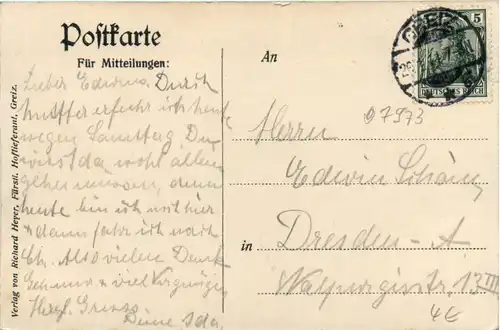 Postkarte
Für Mitteilungen:
An
Lieber Edwin. Durch
Mutter erfuhr ich heut
wegen Samstag. Du
wirst da wohl allein
gehen müssen, denn
heute bin ich noch hier
+ dann fahr ich nach
Ch. Also vielen Dank
+ viel Vergnügen
Herzl. Gruss
Deine Ida.
Verlag von Richard Heyer, Fürstl. Hoflieferant, Greiz.
GREIZ
5
DEUTSCHES REICH
07973
Herrn
Edwin
in Dresden-A.
Walpurgisstr. 13 III
4E